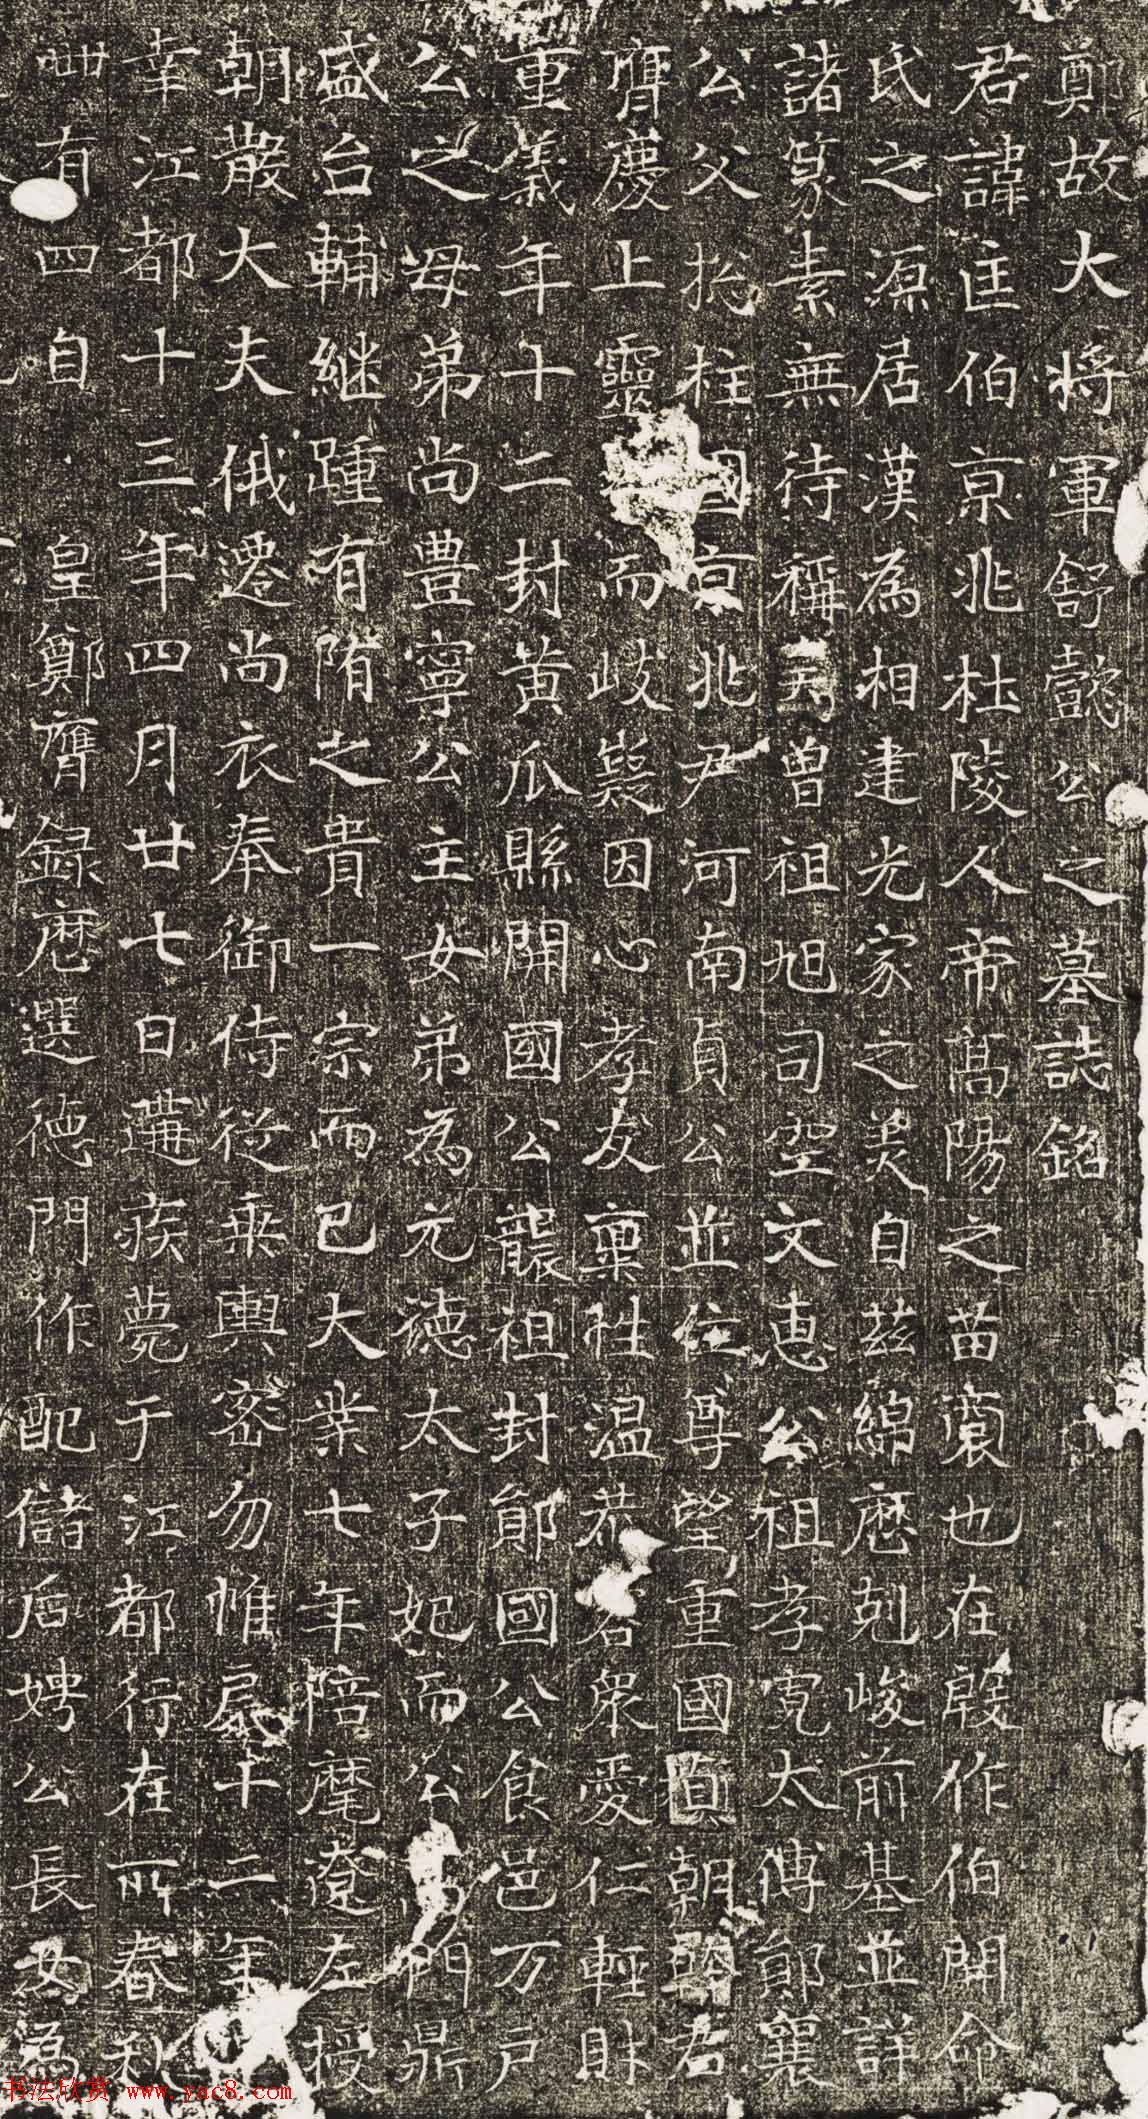 鄭故大将軍舒懿公之墓誌銘
君諱匡伯京兆杜陵人帝髙陽之苗裔也在殷作伯開命
氏之源居漢為相建光家之美自兹綿歴剋峻前基並詳
諸篆素無待稱言曾祖旭司空文惠公祖孝寛太傅鄖襄
公父揔柱國京兆尹河南貞公並位尊望重國朝君
膺慶上靈而岐嶷因心孝友禀性温恭容衆愛仁輕財
重義年十二封黄瓜縣開國公襲祖封鄖國公食邑万戸
公之母弟尚豊寧公主女弟為元徳太子妃而公髙門鼎
盛台輔継踵有隋之貴一宗而已大業七年陪麾遼左授
朝散大夫俄遷尚衣奉御侍從乗輿密勿帷扆十二年
幸江都十三年四月廿七日遘疾薨于江都行在所春秋
卌有四自皇鄭膺録歴選徳門作配儲后娉公長女為
书法欣赏 www.yac8.com